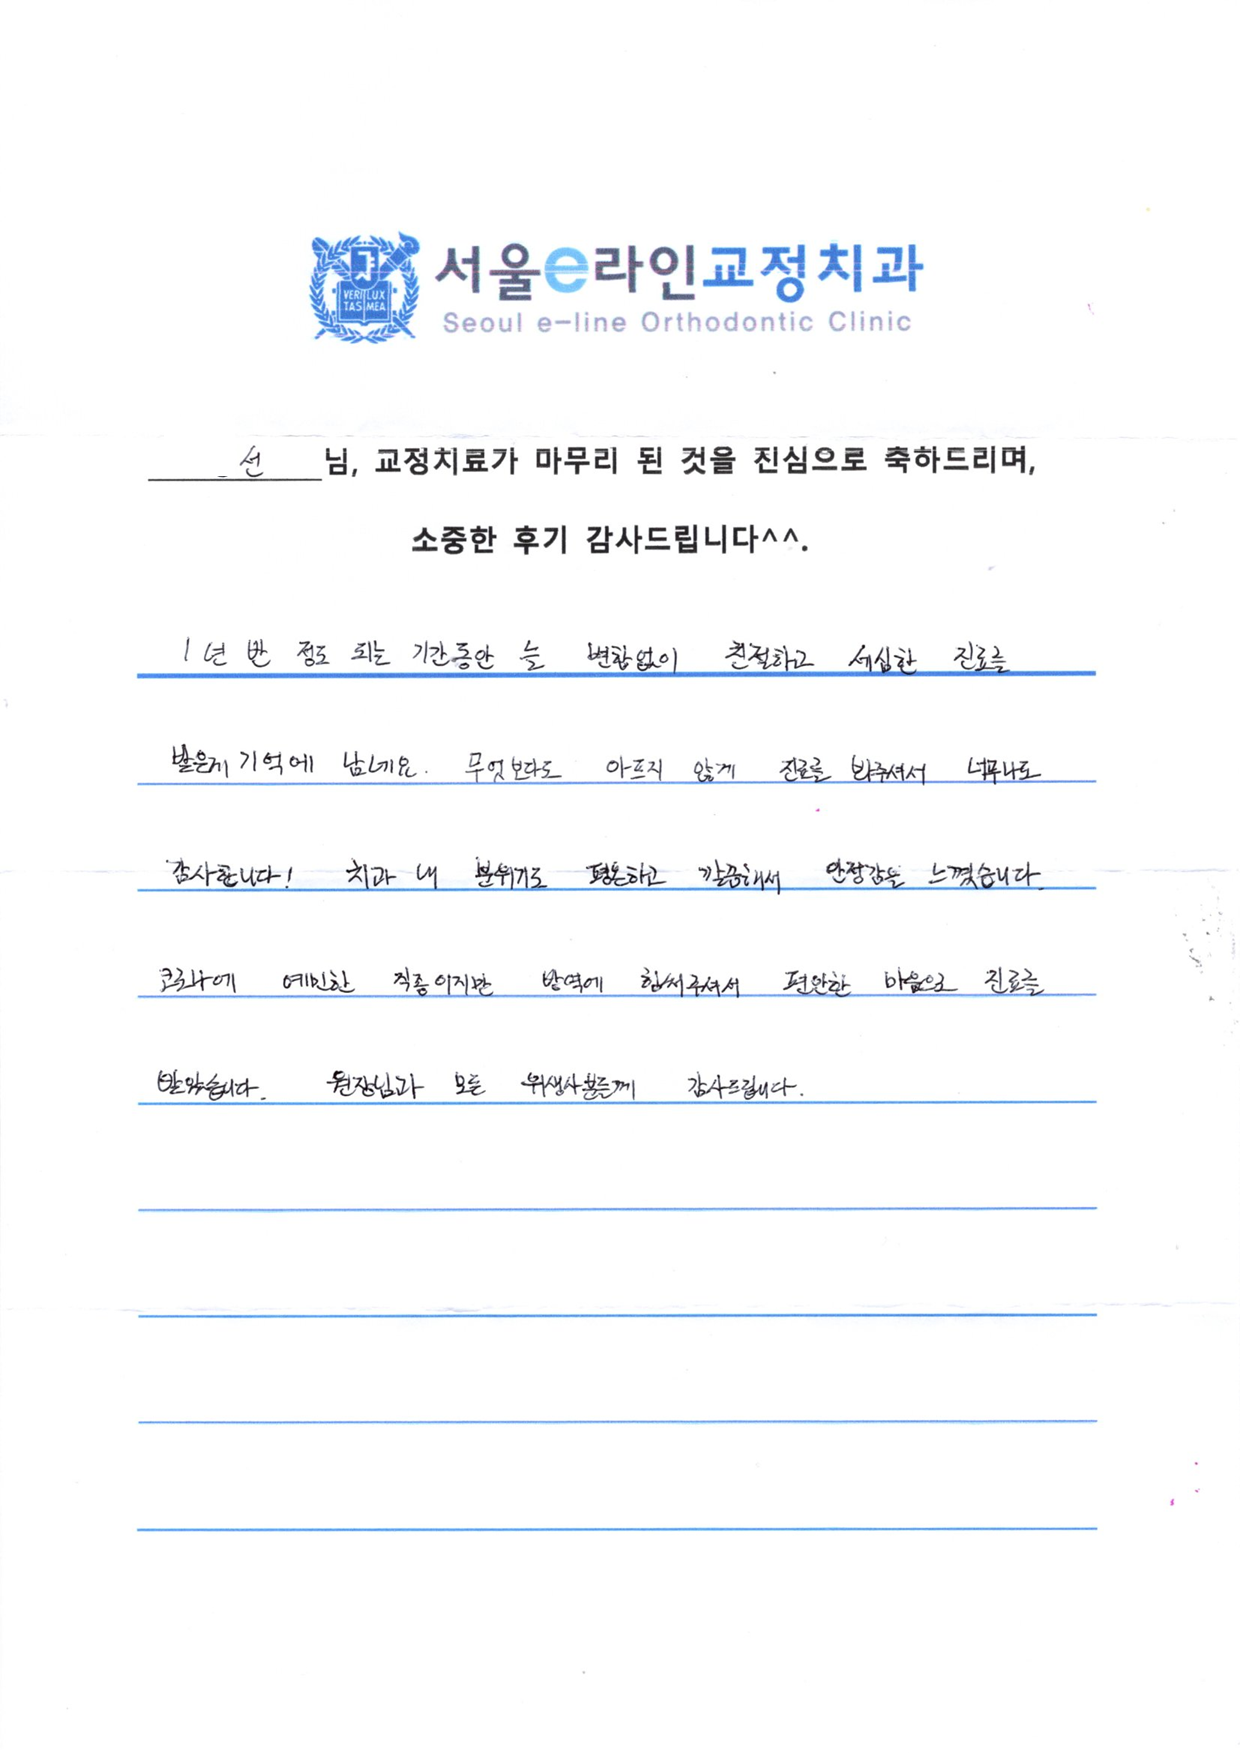 서울e라인교정치과
Seoul e-line Orthodontic Clinic
VERI LUX
TAS MEA
선 님, 교정치료가 마무리 된 것을 진심으로 축하드리며,
소중한 후기 감사드립니다^^.
1년 반 정도 되는 기간동안 늘 변함없이 친절하고 세심한 진료를
받은게 기억에 남네요. 무엇보다도 아프지 않게 진료를 봐주셔서 너무나도
감사합니다! 치과 내 분위기도 평온하고 깔끔해서 안정감을 느꼈습니다.
코로나에 예민한 직종이지만 방역에 힘써주셔서 편안한 마음으로 진료를
받았습니다. 원장님과 모든 위생사분들께 감사드립니다.